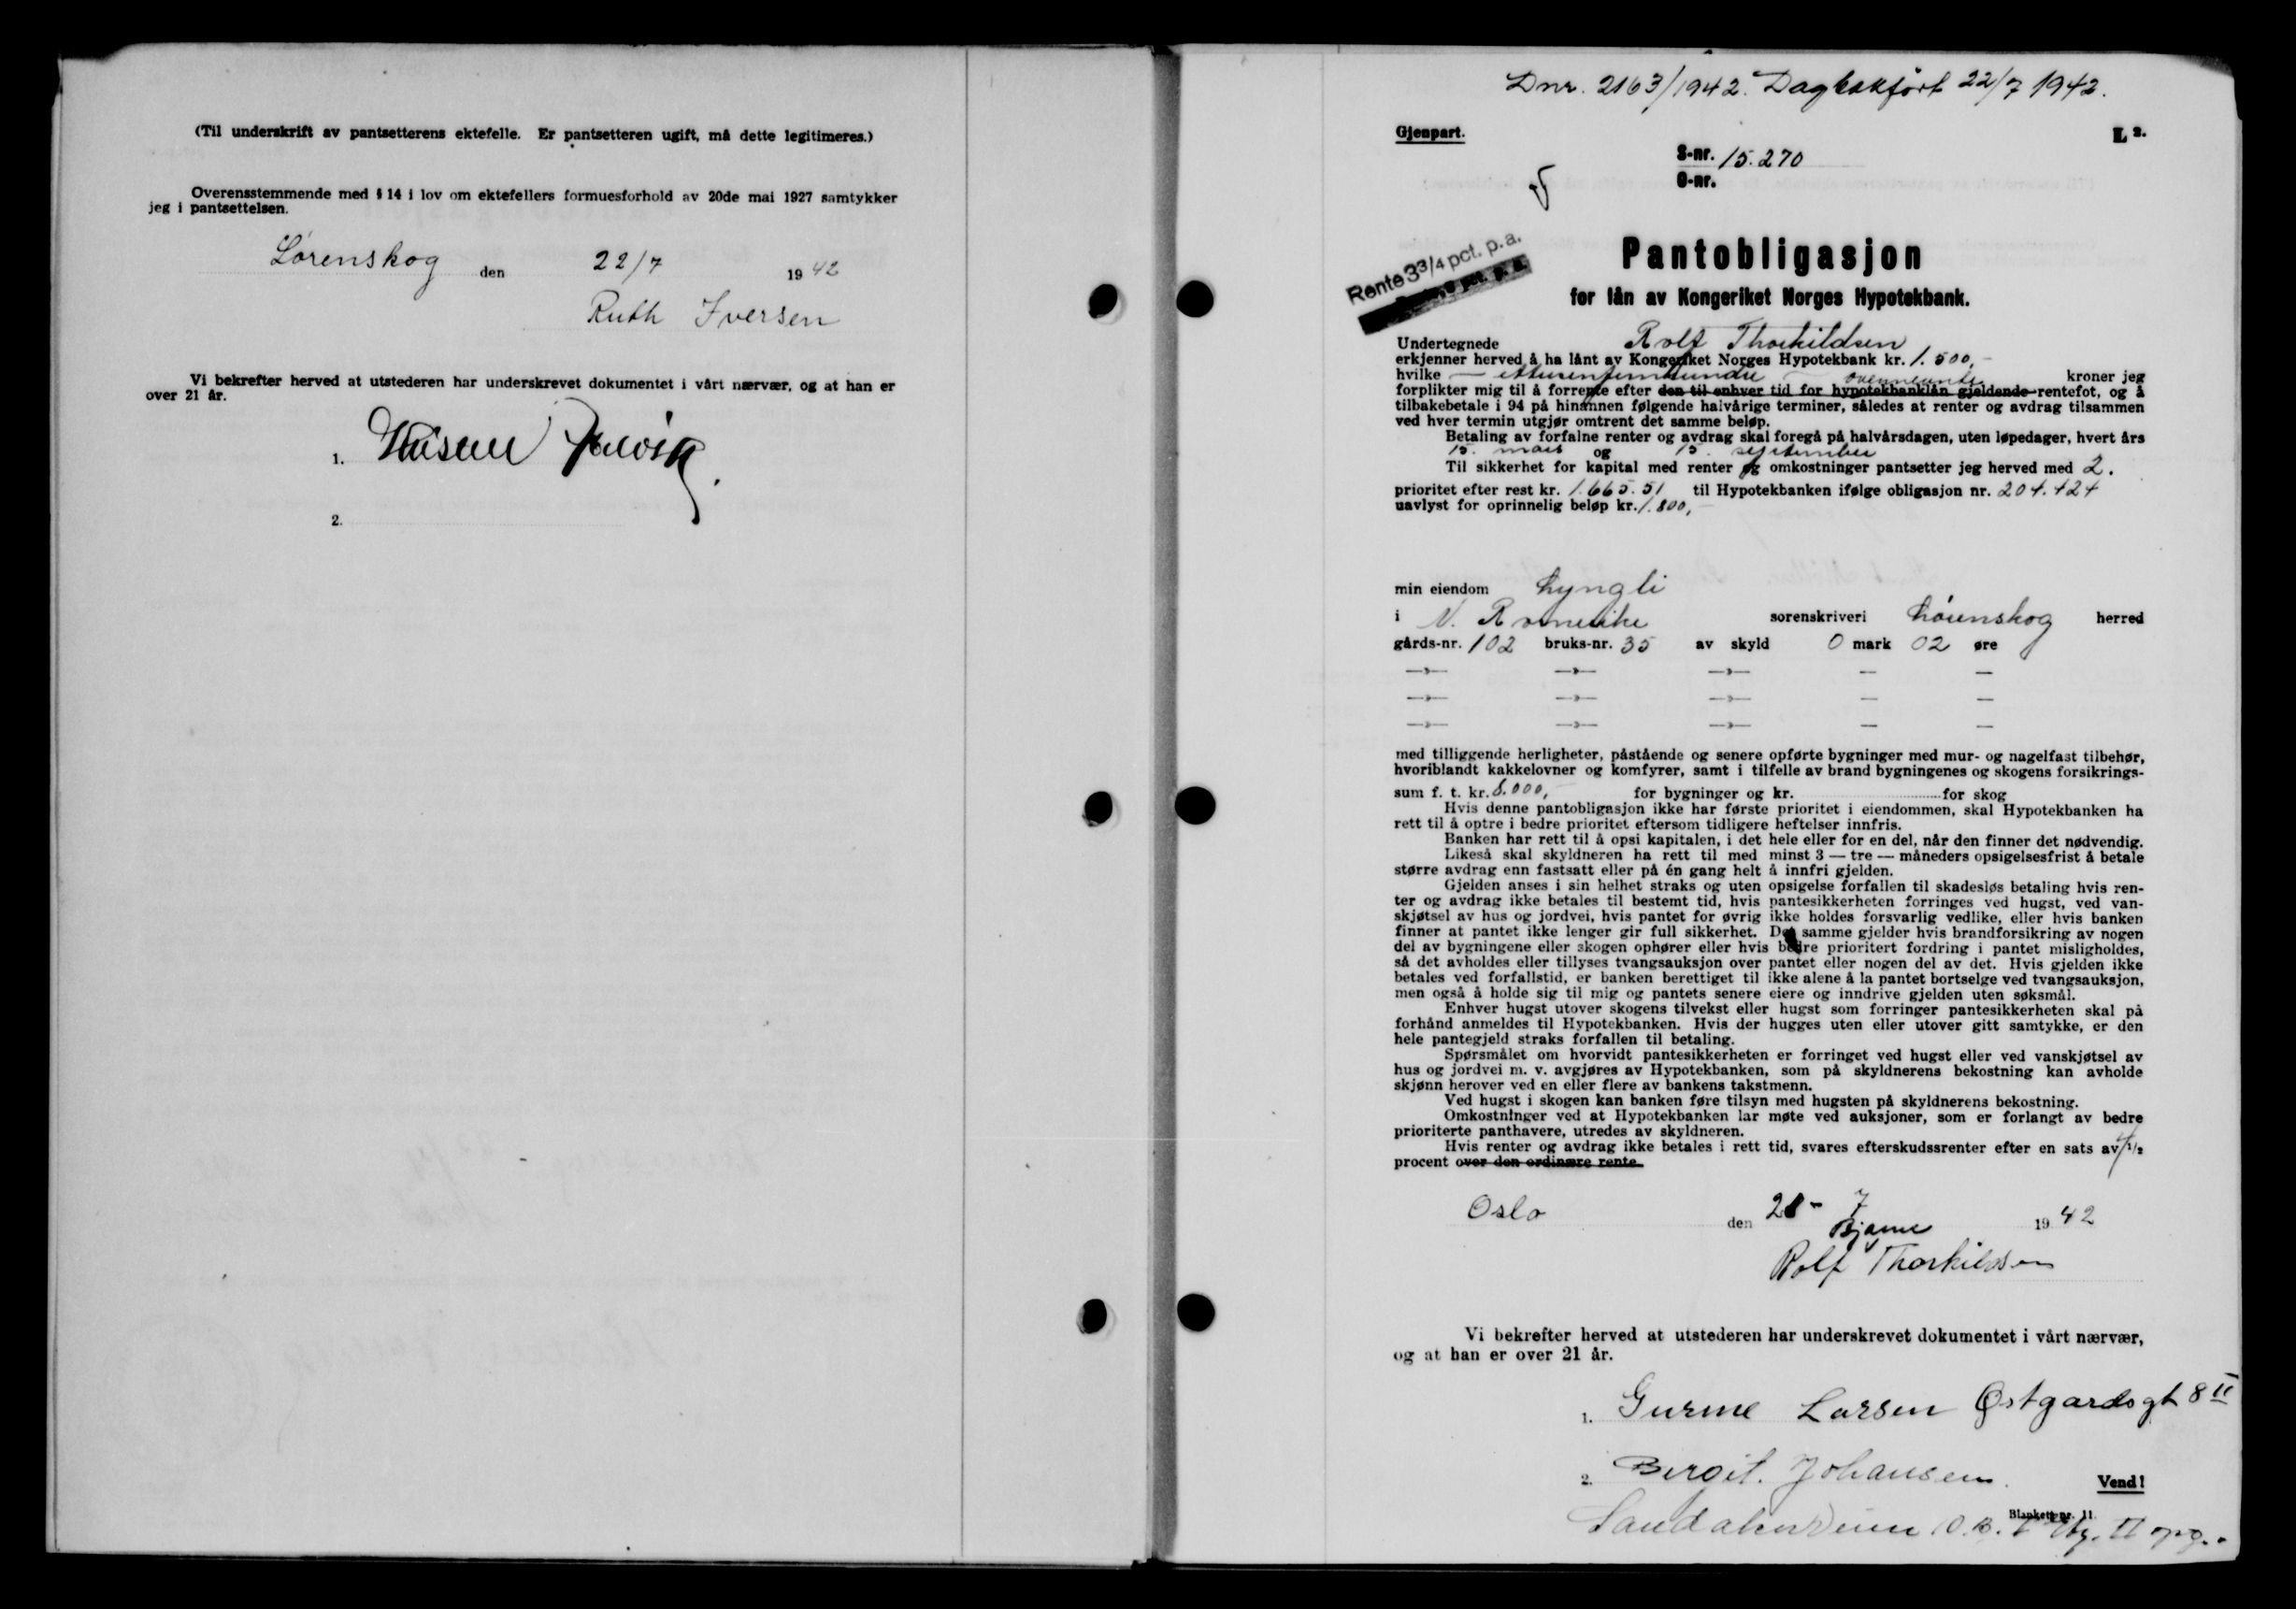 (Til underskrift av pantsetterens ektefelle. Er pantsetteren ugift, må dette legitimeres.)
Overensstemmende med § 14 i lov om ektefellers formuesforhold av 20de mai 1927 samtykker
jeg i pantsettelsen.
Lørenskog den 22/7 1942
Ruth Iversen
Vi bekrefter herved at utstederen har underskrevet dokumentet i vårt nærvær, og at han er
over 21 år.
1.
2.
Dnr. 2163/1942. Dagbokført 22/7 1942.
Gjenpart.
L 2.
S-nr. 15.270
O-nr.
Rente 3 3/4 pct. p.a.
Pantobligasjon
for lån av Kongeriket Norges Hypotekbank.
Undertegnede Rolf Thorkildsen
erkjenner herved å ha lånt av Kongeriket Norges Hypotekbank kr. 1.500,-
hvilke — ettusenfemhundre — kroner jeg
forplikter mig til å forrente efter den til enhver tid for hypotekbanklån gjeldende ovennevnte rentefot, og å
tilbakebetale i 94 på hinannen følgende halvårige terminer, således at renter og avdrag tilsammen
ved hver termin utgjør omtrent det samme beløp.
Betaling av forfalne renter og avdrag skal foregå på halvårsdagen, uten løpedager, hvert års
15. mars og 15. september
Til sikkerhet for kapital med renter og omkostninger pantsetter jeg herved med 2.
prioritet efter rest kr. 1.665.51 til Hypotekbanken ifølge obligasjon nr. 204.424
uavlyst for oprinnelig beløp kr. 1.800,-
min eiendom Lyngli
i N. Romerike sorenskriveri Lørenskog herred
gårds-nr. 102 bruks-nr. 35 av skyld 0 mark 02 øre
—»— —»— —»— — —
—»— —»— —»— — —
—»— —»— —»— — —
med tilliggende herligheter, påstående og senere opførte bygninger med mur- og nagelfast tilbehør,
hvoriblandt kakkelovner og komfyrer, samt i tilfelle av brand bygningenes og skogens forsikrings-
sum f. t. kr. 8.000,- for bygninger og kr. for skog
Hvis denne pantobligasjon ikke har første prioritet i eiendommen, skal Hypotekbanken ha
rett til å optre i bedre prioritet eftersom tidligere heftelser innfris.
Banken har rett til å opsi kapitalen, i det hele eller for en del, når den finner det nødvendig.
Likeså skal skyldneren ha rett til med minst 3 — tre — måneders opsigelsesfrist å betale
større avdrag enn fastsatt eller på én gang helt å innfri gjelden.
Gjelden anses i sin helhet straks og uten opsigelse forfallen til skadesløs betaling hvis ren-
ter og avdrag ikke betales til bestemt tid, hvis pantesikkerheten forringes ved hugst, ved van-
skjøtsel av hus og jordvei, hvis pantet for øvrig ikke holdes forsvarlig vedlike, eller hvis banken
finner at pantet ikke lenger gir full sikkerhet. Det samme gjelder hvis brandforsikring av nogen
del av bygningene eller skogen ophører eller hvis bedre prioritert fordring i pantet misligholdes,
så det avholdes eller tillyses tvangsauksjon over pantet eller nogen del av det. Hvis gjelden ikke
betales ved forfallstid, er banken berettiget til ikke alene å la pantet bortselge ved tvangsauksjon,
men også å holde sig til mig og pantets senere eiere og inndrive gjelden uten søksmål.
Enhver hugst utover skogens tilvekst eller hugst som forringer pantesikkerheten skal på
forhånd anmeldes til Hypotekbanken. Hvis der hugges uten eller utover gitt samtykke, er den
hele pantegjeld straks forfallen til betaling.
Spørsmålet om hvorvidt pantesikkerheten er forringet ved hugst eller ved vanskjøtsel av
hus og jordvei m. v. avgjøres av Hypotekbanken, som på skyldnerens bekostning kan avholde
skjønn herover ved en eller flere av bankens takstmenn.
Ved hugst i skogen kan banken føre tilsyn med hugsten på skyldnerens bekostning.
Omkostninger ved at Hypotekbanken lar møte ved auksjoner, som er forlangt av bedre
prioriterte panthavere, utredes av skyldneren.
Hvis renter og avdrag ikke betales i rett tid, svares efterskudssrenter efter en sats av 4 1/2
procent over den ordinære rente.
Oslo den 21-7 1942
Bjarne
Rolf Thorkildsen
Vi bekrefter herved at utstederen har underskrevet dokumentet i vårt nærvær,
og at han er over 21 år.
1. Larsen Østgardsgt 8 II
2. Birgit Johansen.
Vend!
Blankett nr. 11.
II opg.